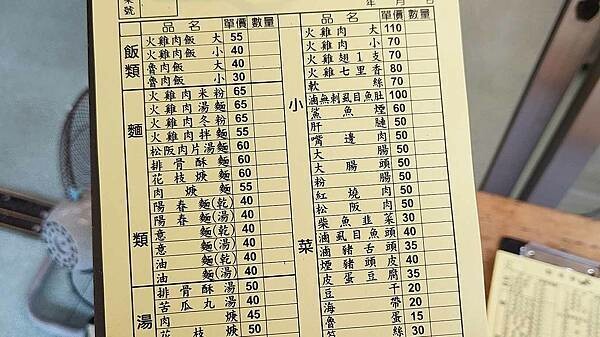 號
年 月 日
品名 單價 數量
飯類
火雞肉飯 大 55
火雞肉飯 小 40
魯肉飯 大 40
魯肉飯 小 30
麵類
火雞肉米粉 65
火雞肉湯麵 65
火雞肉冬粉 65
火雞肉拌麵 55
松阪肉片湯麵 60
排骨酥麵 60
花枝焿麵 60
肉焿麵 55
陽春麵(乾) 40
陽春麵(湯) 40
意麵(乾) 40
意麵(湯) 40
油麵(乾) 40
油麵(湯) 40
湯
排骨酥湯 50
苦瓜丸湯 40
肉焿 45
花枝焿 50
品名 單價 數量
小菜
火雞肉 大 110
火雞肉 小 70
火雞翅1支 70
火雞七里香 80
軟絲 70
滷無刺虱目魚肚 100
鯊魚煙 60
肝腱 50
嘴邊肉 50
大腸 50
大腸頭 50
粉腸 50
紅燒肉 50
松阪肉 50
柴魚韭菜 30
滷虱目魚頭 40
滷豬舌頭 35
煙豬頭皮 40
皮蛋豆腐 35
豆干 20
海帶 20
魯蛋 15
筍絲 30